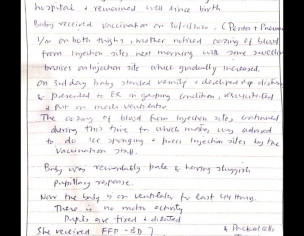 hospital & remained well since birth
Baby received vaccination on (Penta + Pneumo
1/m on both thighs, mother noticed oozing of blood
from injection sites next morning, with some swelling
bruises on injection site which gradually increased.
on 3rd day baby started vomiting & developed
& presented to ER in gasping condition, resuscitated
& put on mech. ventilator.
The oozing of blood from injection sites continued
during this time for which mother was advised
to do ice sponging & press injection sites by the
vaccination staff.
Baby was remarkably pale & having sluggish
pupillary response.
Now the baby is on ventilator for last 44 hrs.
There is no motor activity
Pupils are fixed & dilated
She received FFP - & Packed cells